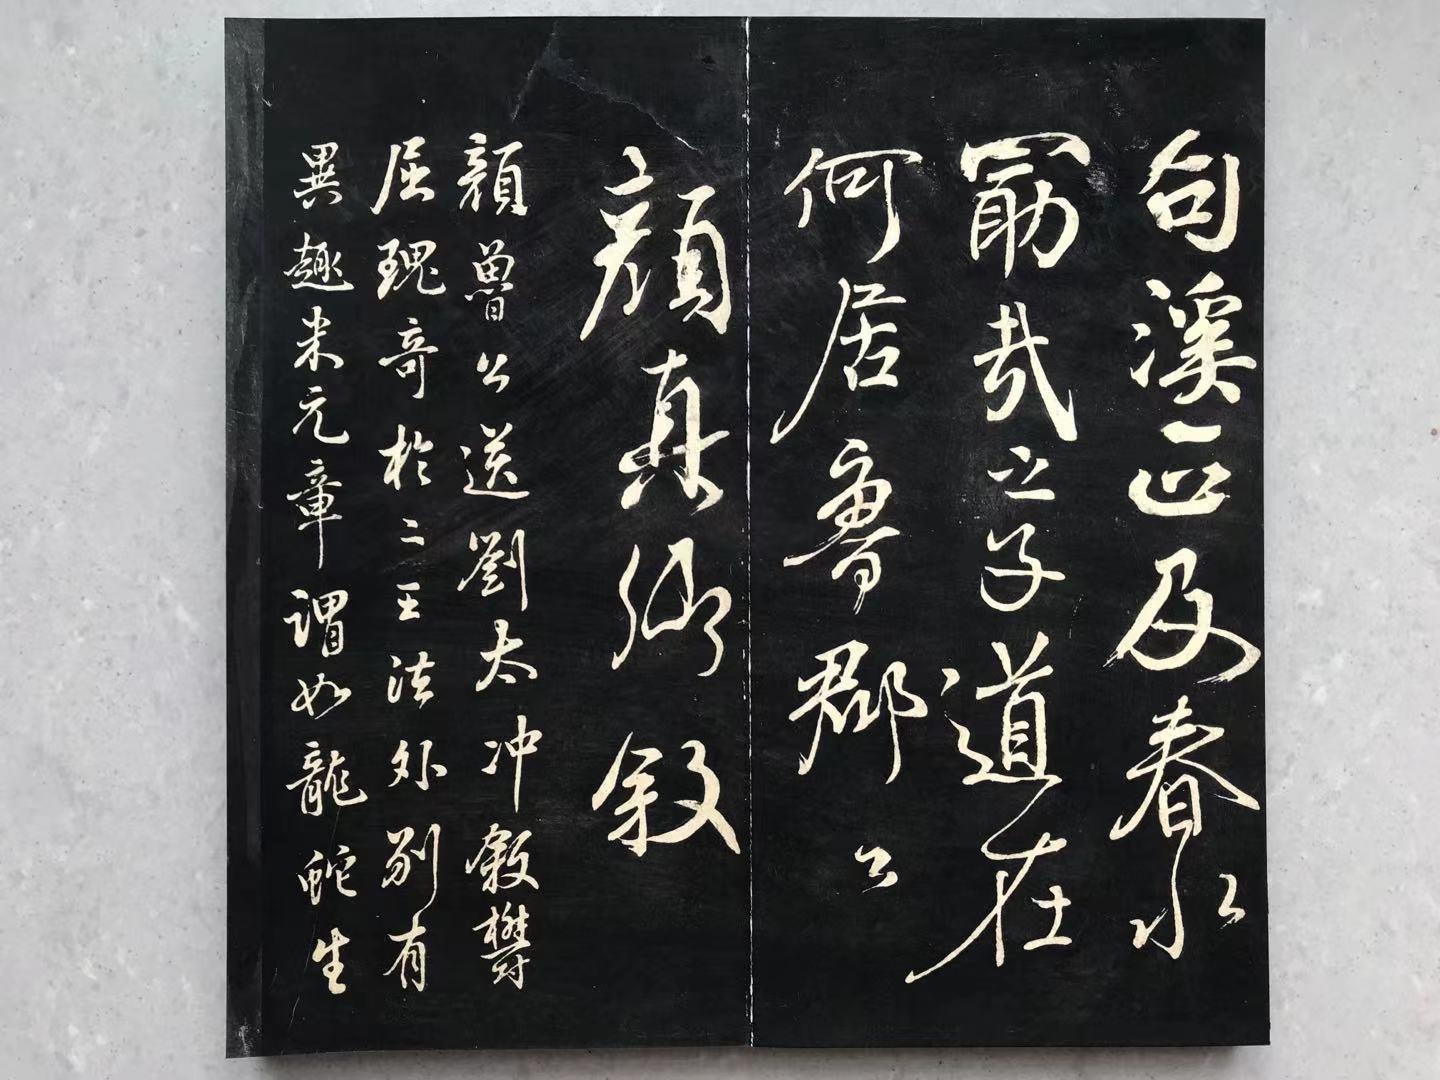 句溪正及春水
勖哉之子道在
何居魯郡公
顔真卿叙
顔魯公送劉太冲敘欝
屈瑰奇於二王法外别有
異趣米元章謂如龍蛇生